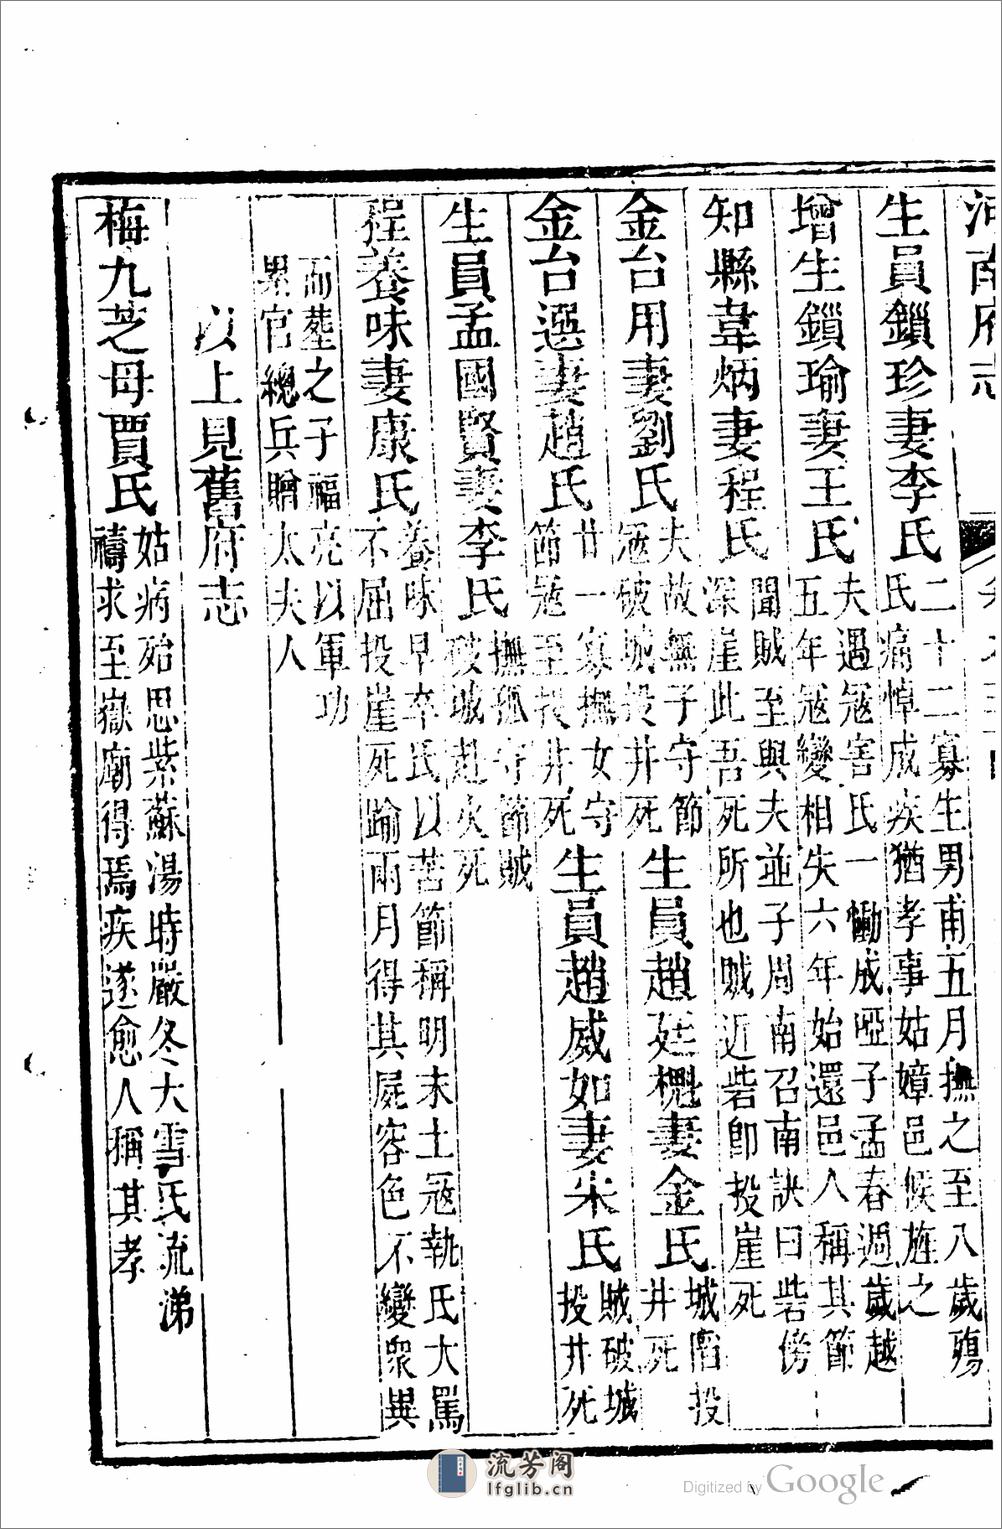 河南府志
生員鎖珍妻李氏 二十二寡生男甫五月撫之至八歲殤
氏痛悼成疾猶孝事姑嫜邑候旌之
增生鎖瑜妻王氏 夫遇寇害氏一慟成啞子孟春週歲越
五年寇變相失六年始還邑人稱其節
知縣韋炳妻程氏 聞賊至與夫並子周南召南訣曰砦傍
深崖此吾死所也賊近砦即投崖死
金台用妻劉氏 夫故無子守節
寇破城投井死
生員趙廷櫆妻金氏 城陷投
井死
金台選妻趙氏 廿一寡撫女守
節寇至投井死
生員趙威如妻宋氏 賊破城
投井死
生員孟國賢妻李氏 撫孤守節賊
破城赴火死
程養味妻康氏 養味早卒氏以苦節稱明末土寇執氏大罵
不屈投崖死踰兩月得其屍容色不變衆異
而葬之子福亮以軍功
累官總兵贈太夫人
以上見舊府志
梅九芝母賈氏 姑病殆思紫蘇湯時嚴冬大雪氏流涕
禱求至嶽廟得焉疾遂愈人稱其孝
流芳阁
lfglib.cn
Digitized by Google